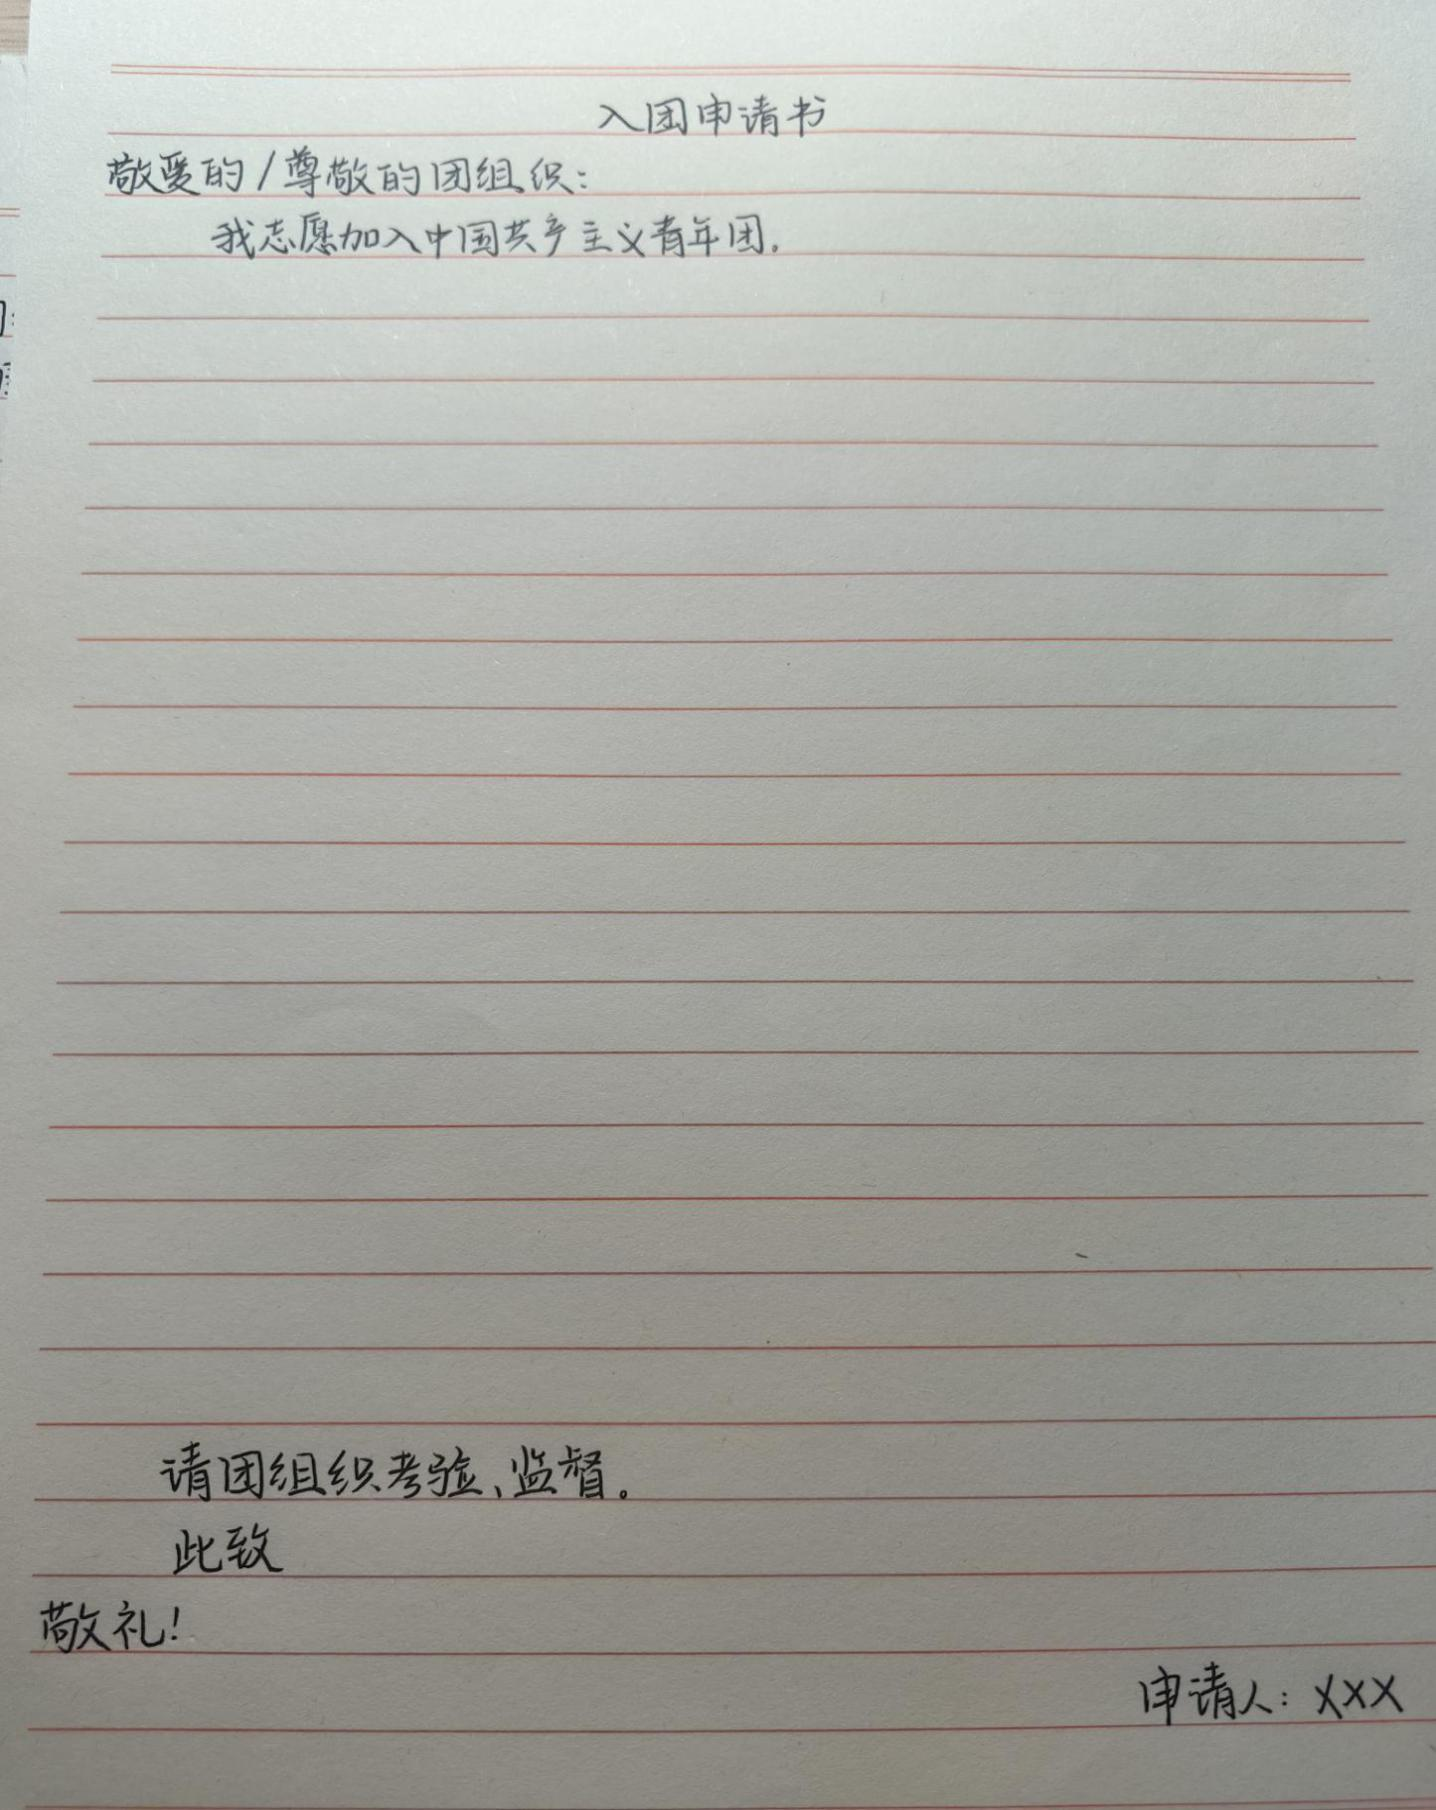 入团申请书
敬爱的/尊敬的团组织:
我志愿加入中国共产主义青年团。
请团组织考验、监督。
此致
敬礼!
申请人: XXX